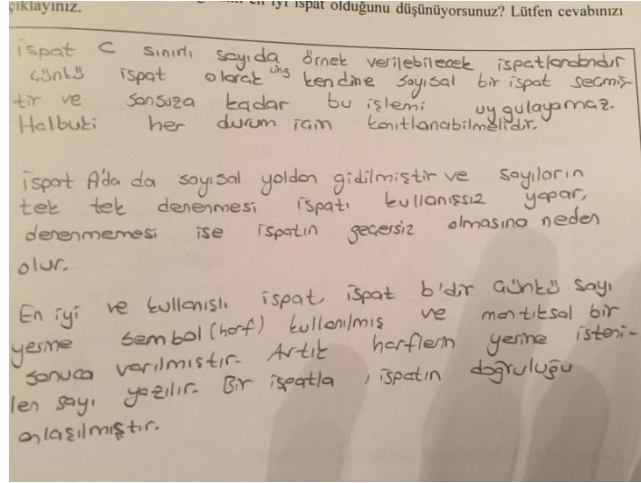 çıklayınız. en iyi ispat olduğunu düşünüyorsunuz? Lütfen cevabınızı
ispat C sınırlı sayıda örnek verilebilecek ispatlardandır
Günkü ispat olarak kendine sayısal bir ispat seçmiş-
tir ve sonsuza kadar bu işlemi uygulayamaz.
Halbuki her durum için kanıtlanabilmelidir.
ispat A'da da sayısal yoldan gidilmiştir ve sayıların
tek tek denenmesi ispatı kullanışsız yapar,
denenmemesi ise ispatın geçersiz olmasına neden
olur.
En iyi ve kullanışlı ispat, ispat b'dir Günkü sayı
yerine sembol (harf) kullanılmış ve mantıksal bir
sonuca varılmıştır. Artık harflerin yerine isteni-
len sayı yazılır. Bir ispatla, ispatın doğruluğu
anlaşılmıştır.